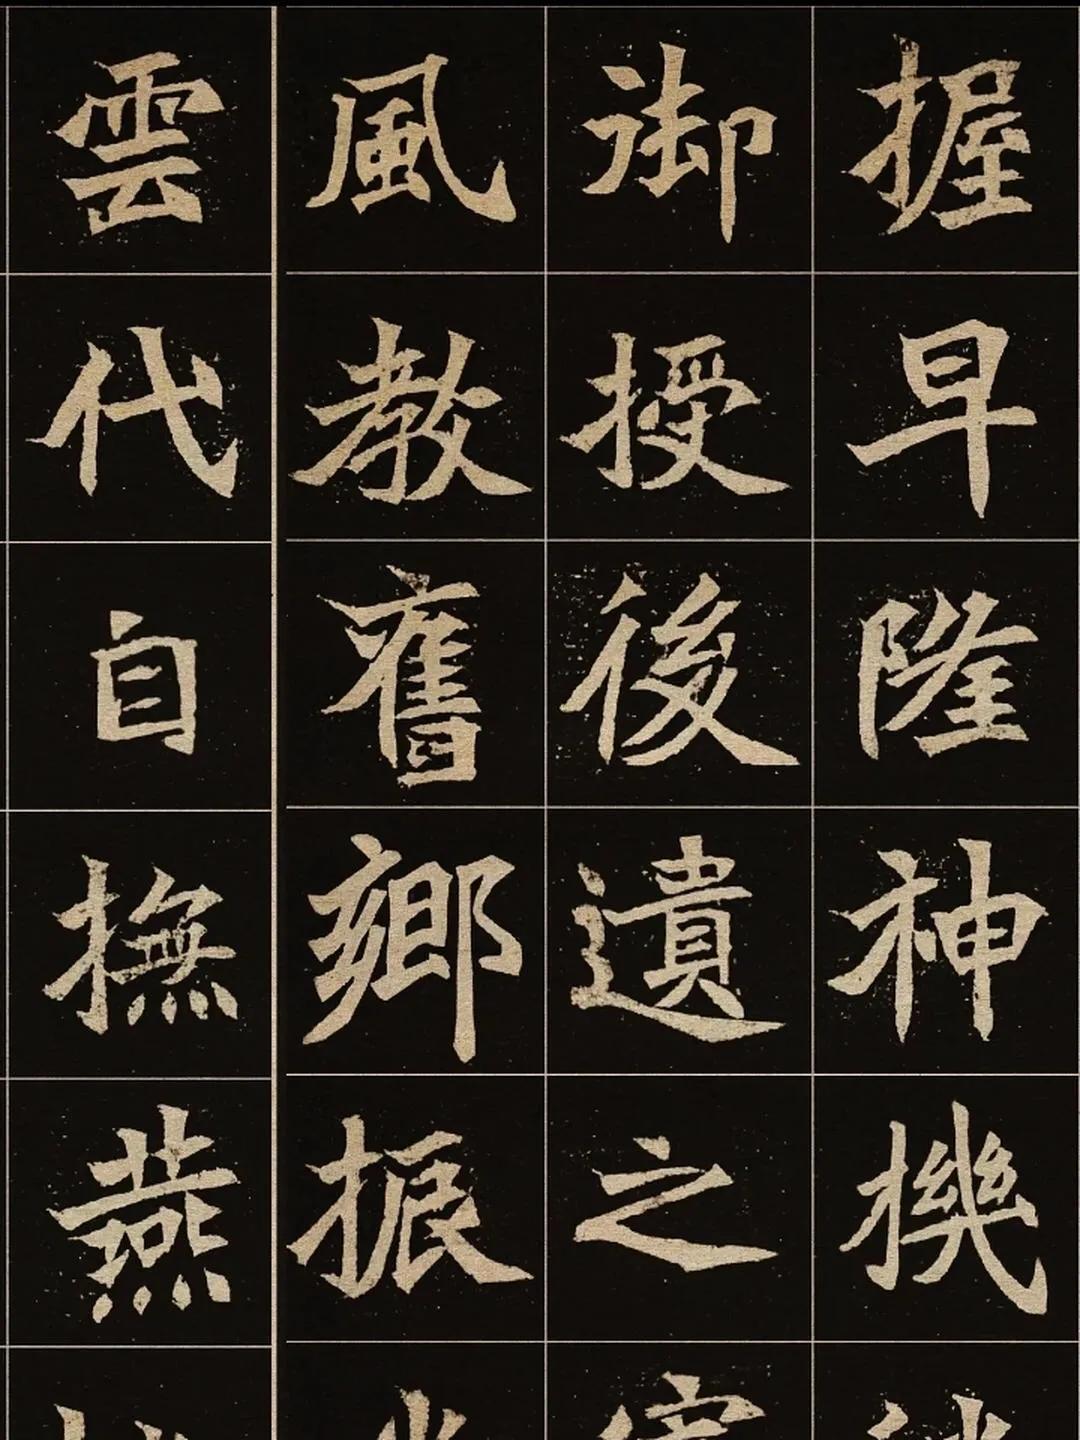 握早隆神機
御授後遺之
風教舊鄉振
雲代自撫燕